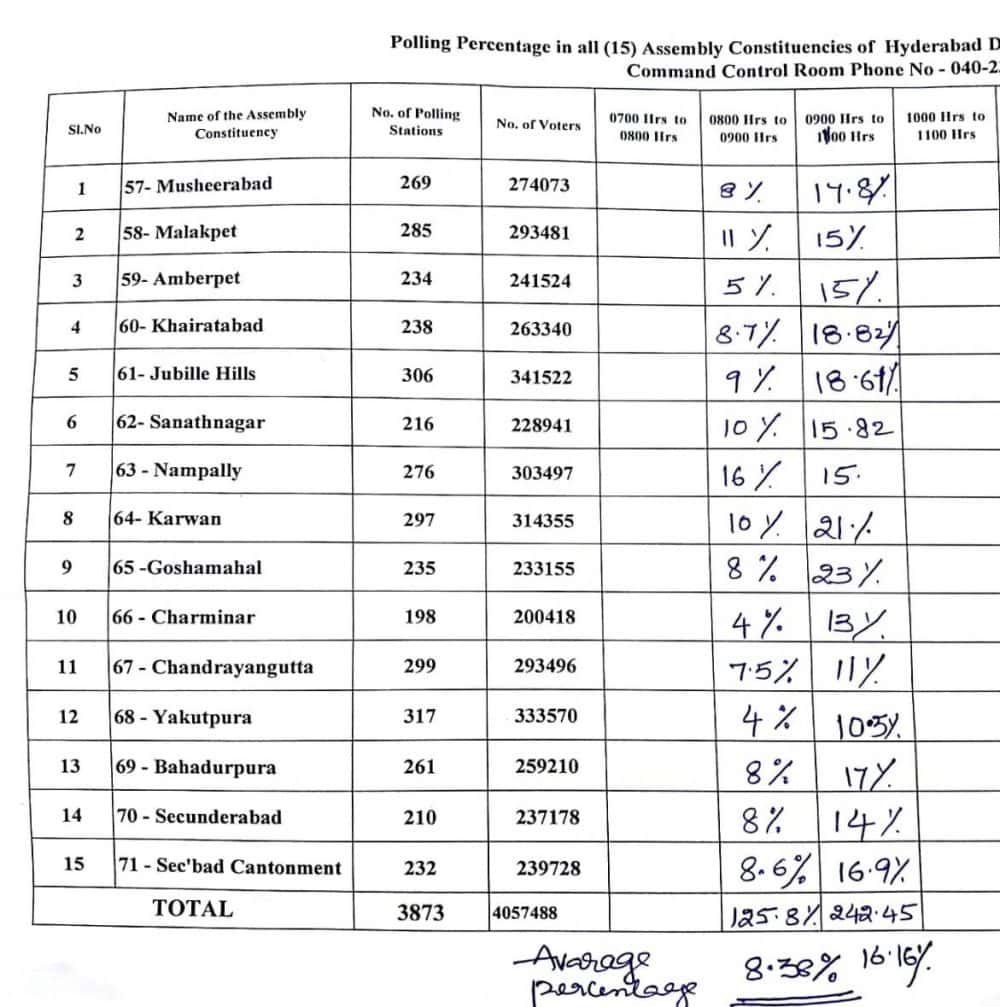 Polling Percentage in all (15) Assembly Constituencies of Hyderabad D
Command Control Room Phone No - 040-2
Sl.No Name of the Assembly Constituency No. of Polling Stations No. of Voters 0700 Hrs to 0800 Hrs 0800 Hrs to 0900 Hrs 0900 Hrs to 1000 Hrs 1000 Hrs to 1100 Hrs
1 57- Musheerabad 269 274073 8% 17.8%
2 58- Malakpet 285 293481 11% 15%
3 59- Amberpet 234 241524 5% 15%
4 60- Khairatabad 238 263340 8.7% 18.82%
5 61- Jubille Hills 306 341522 9% 18.61%
6 62- Sanathnagar 216 228941 10% 15.82
7 63 - Nampally 276 303497 16% 15.
8 64- Karwan 297 314355 10% 21%
9 65 -Goshamahal 235 233155 8% 23%
10 66 - Charminar 198 200418 4% 13%
11 67 - Chandrayangutta 299 293496 7.5% 11%
12 68 - Yakutpura 317 333570 4% 10.5%
13 69 - Bahadurpura 261 259210 8% 17%
14 70 - Secunderabad 210 237178 8% 14%
15 71 - Sec'bad Cantonment 232 239728 8.6% 16.9%
TOTAL 3873 4057488 125.8% 242.45
Avarage percentage 8.38% 16.16%